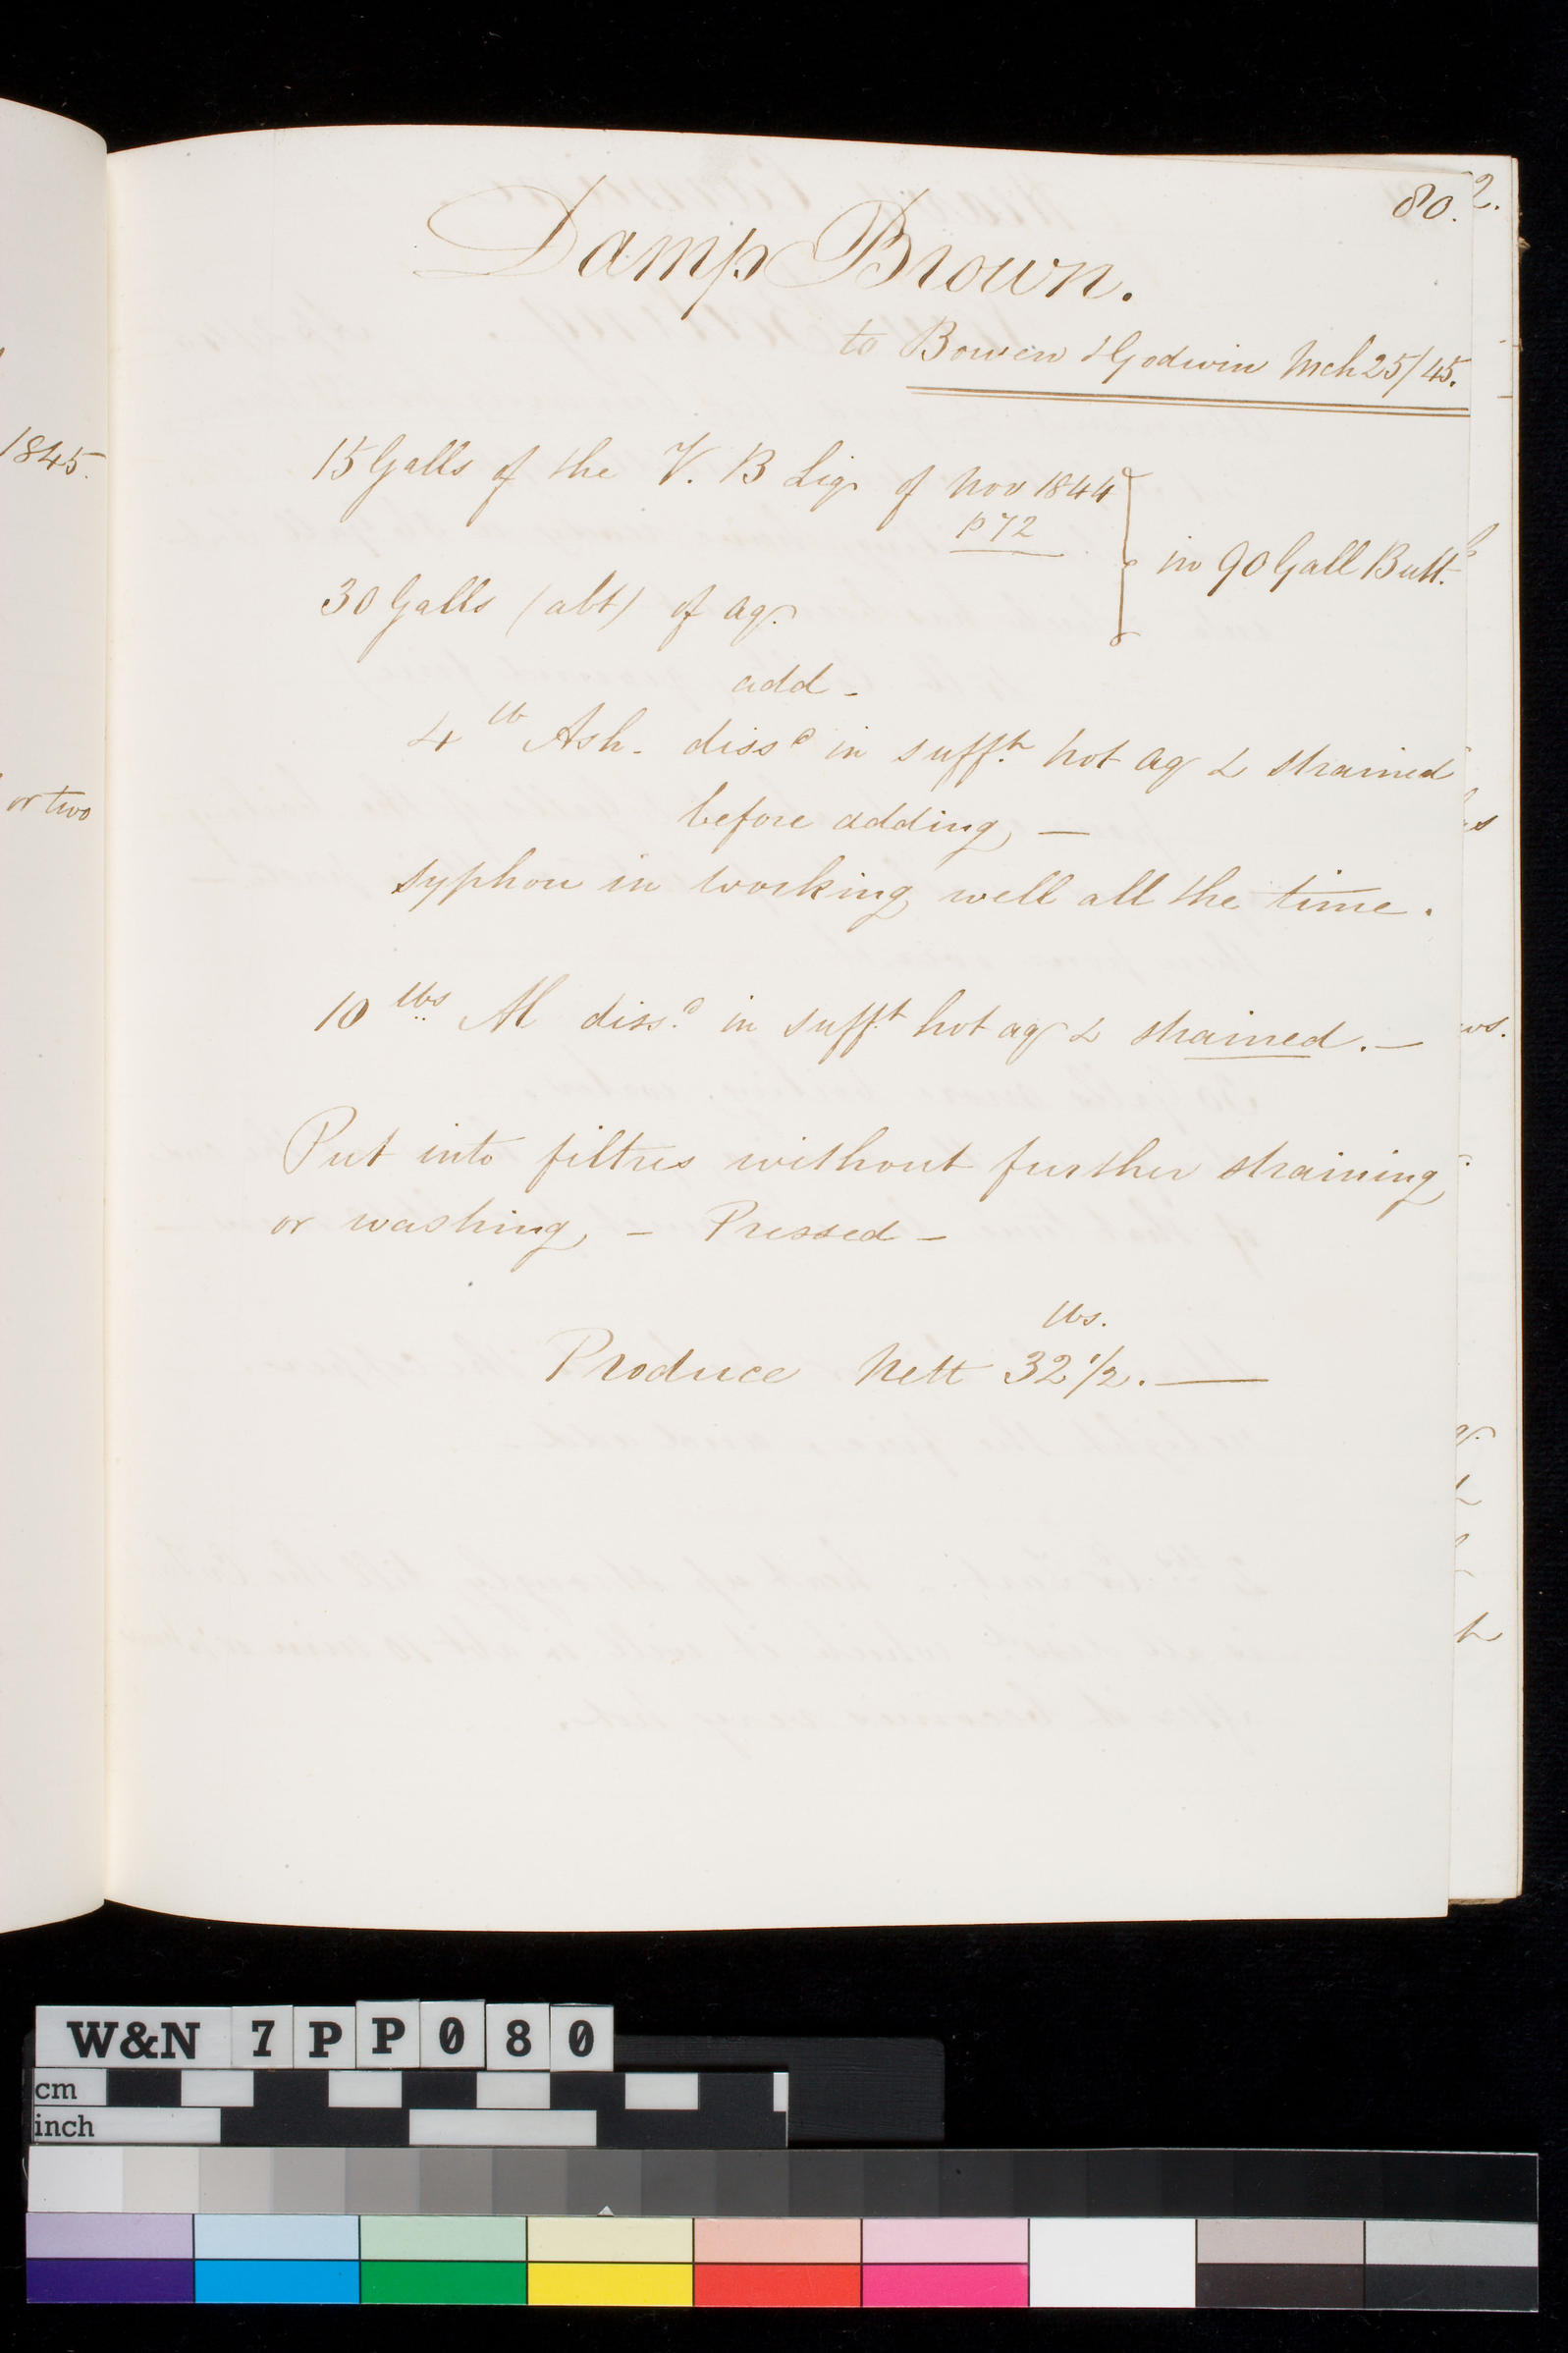 80.
2.
Damp Brown.
to Bowen & Godwin Mch 25/45.
1845.
15 Galls of the V. B Liq. of Nov 1844
p 72
in 90 Gall Butt.
30 Galls (abt) of aq.
add -
4 lb Ash - dissd in sufft hot aq & strained
or two
before adding, —
syphon in working well all the time.
10 lbs Al dissd in sufft hot aq & strained. —
Put into filtres without further straining
or washing, - Pressed -
lbs.
Produce Nett 32 1/2. —
W&N 7PP080
cm
inch